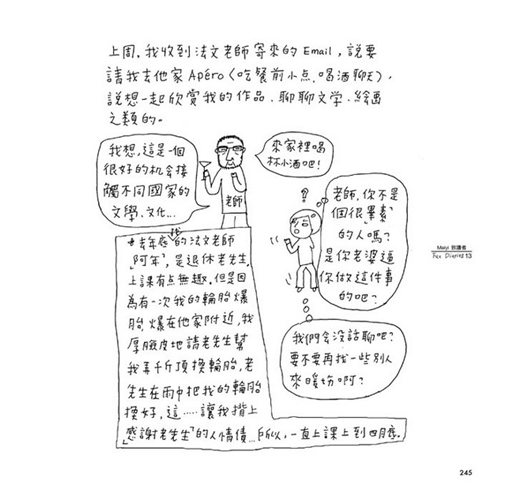 上周，我收到法文老師寄來的Email，說要
請我去他家Apéro（吃餐前小点、喝酒聊天），
說想一起欣賞我的作品、聊聊文学、繪画
之類的。
我想，這是一個
很好的机会接
觸不同國家的
文學、文化...
老師
來家裡喝
杯小酒吧！
?
老師，你不是
個很「悶素」
的人嗎？
是你老婆逼
你做這件事
的吧？
我們会没話聊吧？
要不要再找一些別人
來暖场啊？
去年底的法文老師
「阿年」，是退休老先生。
上課有点無趣。但是因
為有一次我的輪胎爆
胎，爆在他家附近，我
厚臉皮地請老先生幫
我弄千斤頂換輪胎，老
先生在雨中把我的輪胎
換好，這......讓我揹上
「感謝老先生」的人情債...所以，一直上課上到四月底.
Meiyi 郭讀者
13
245